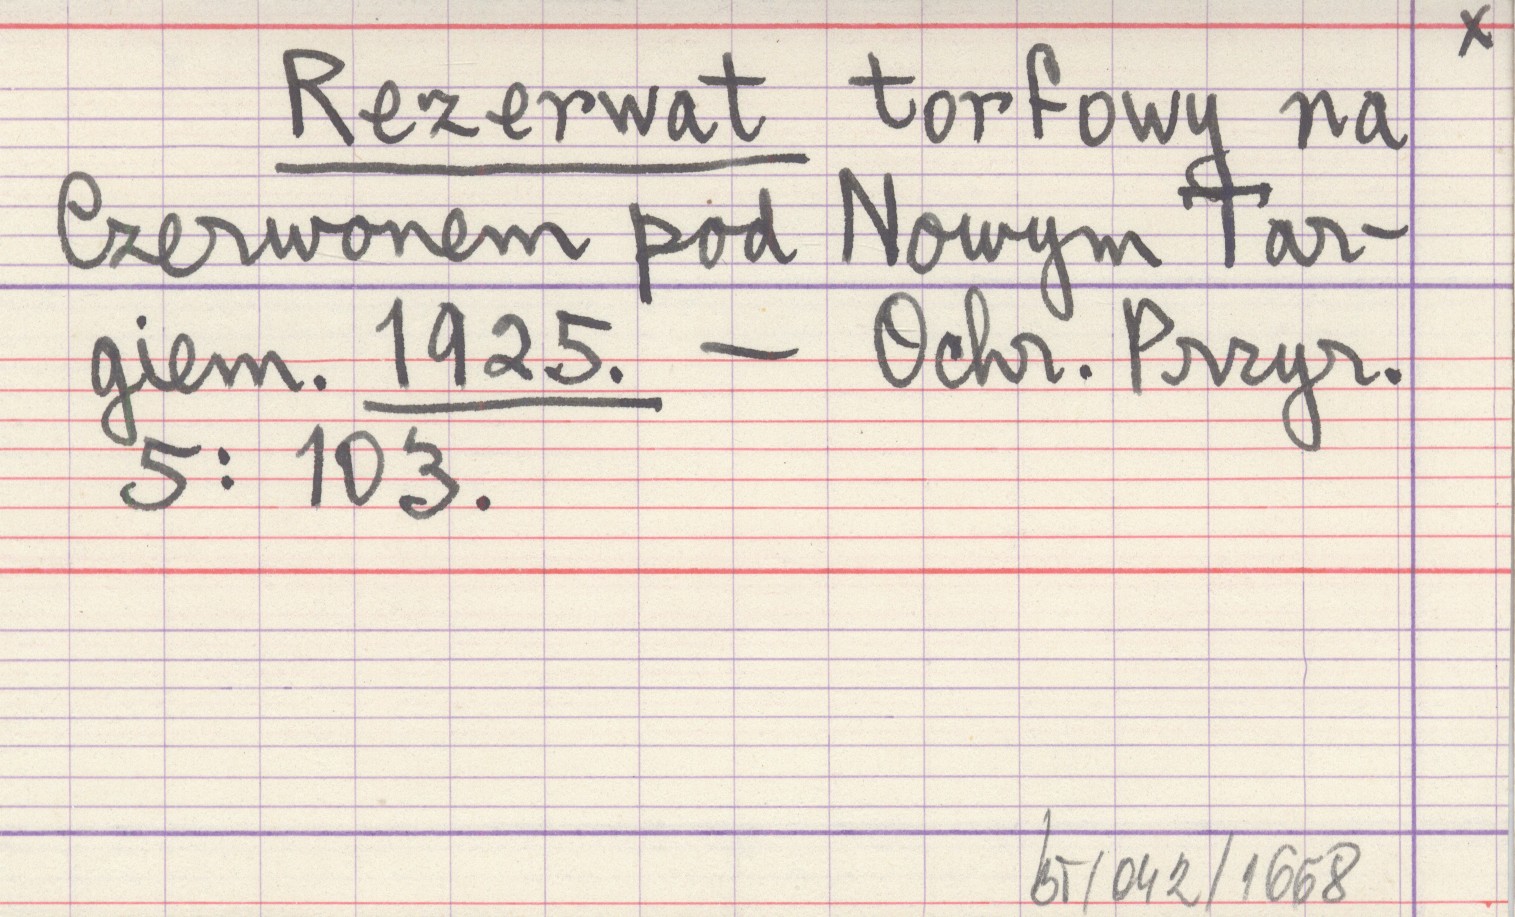 x
Rezerwat torfowy na
Czerwonem pod Nowym Tar-
giem. 1925. — Ochr. Przyr.
5: 103.
bT/042/1668